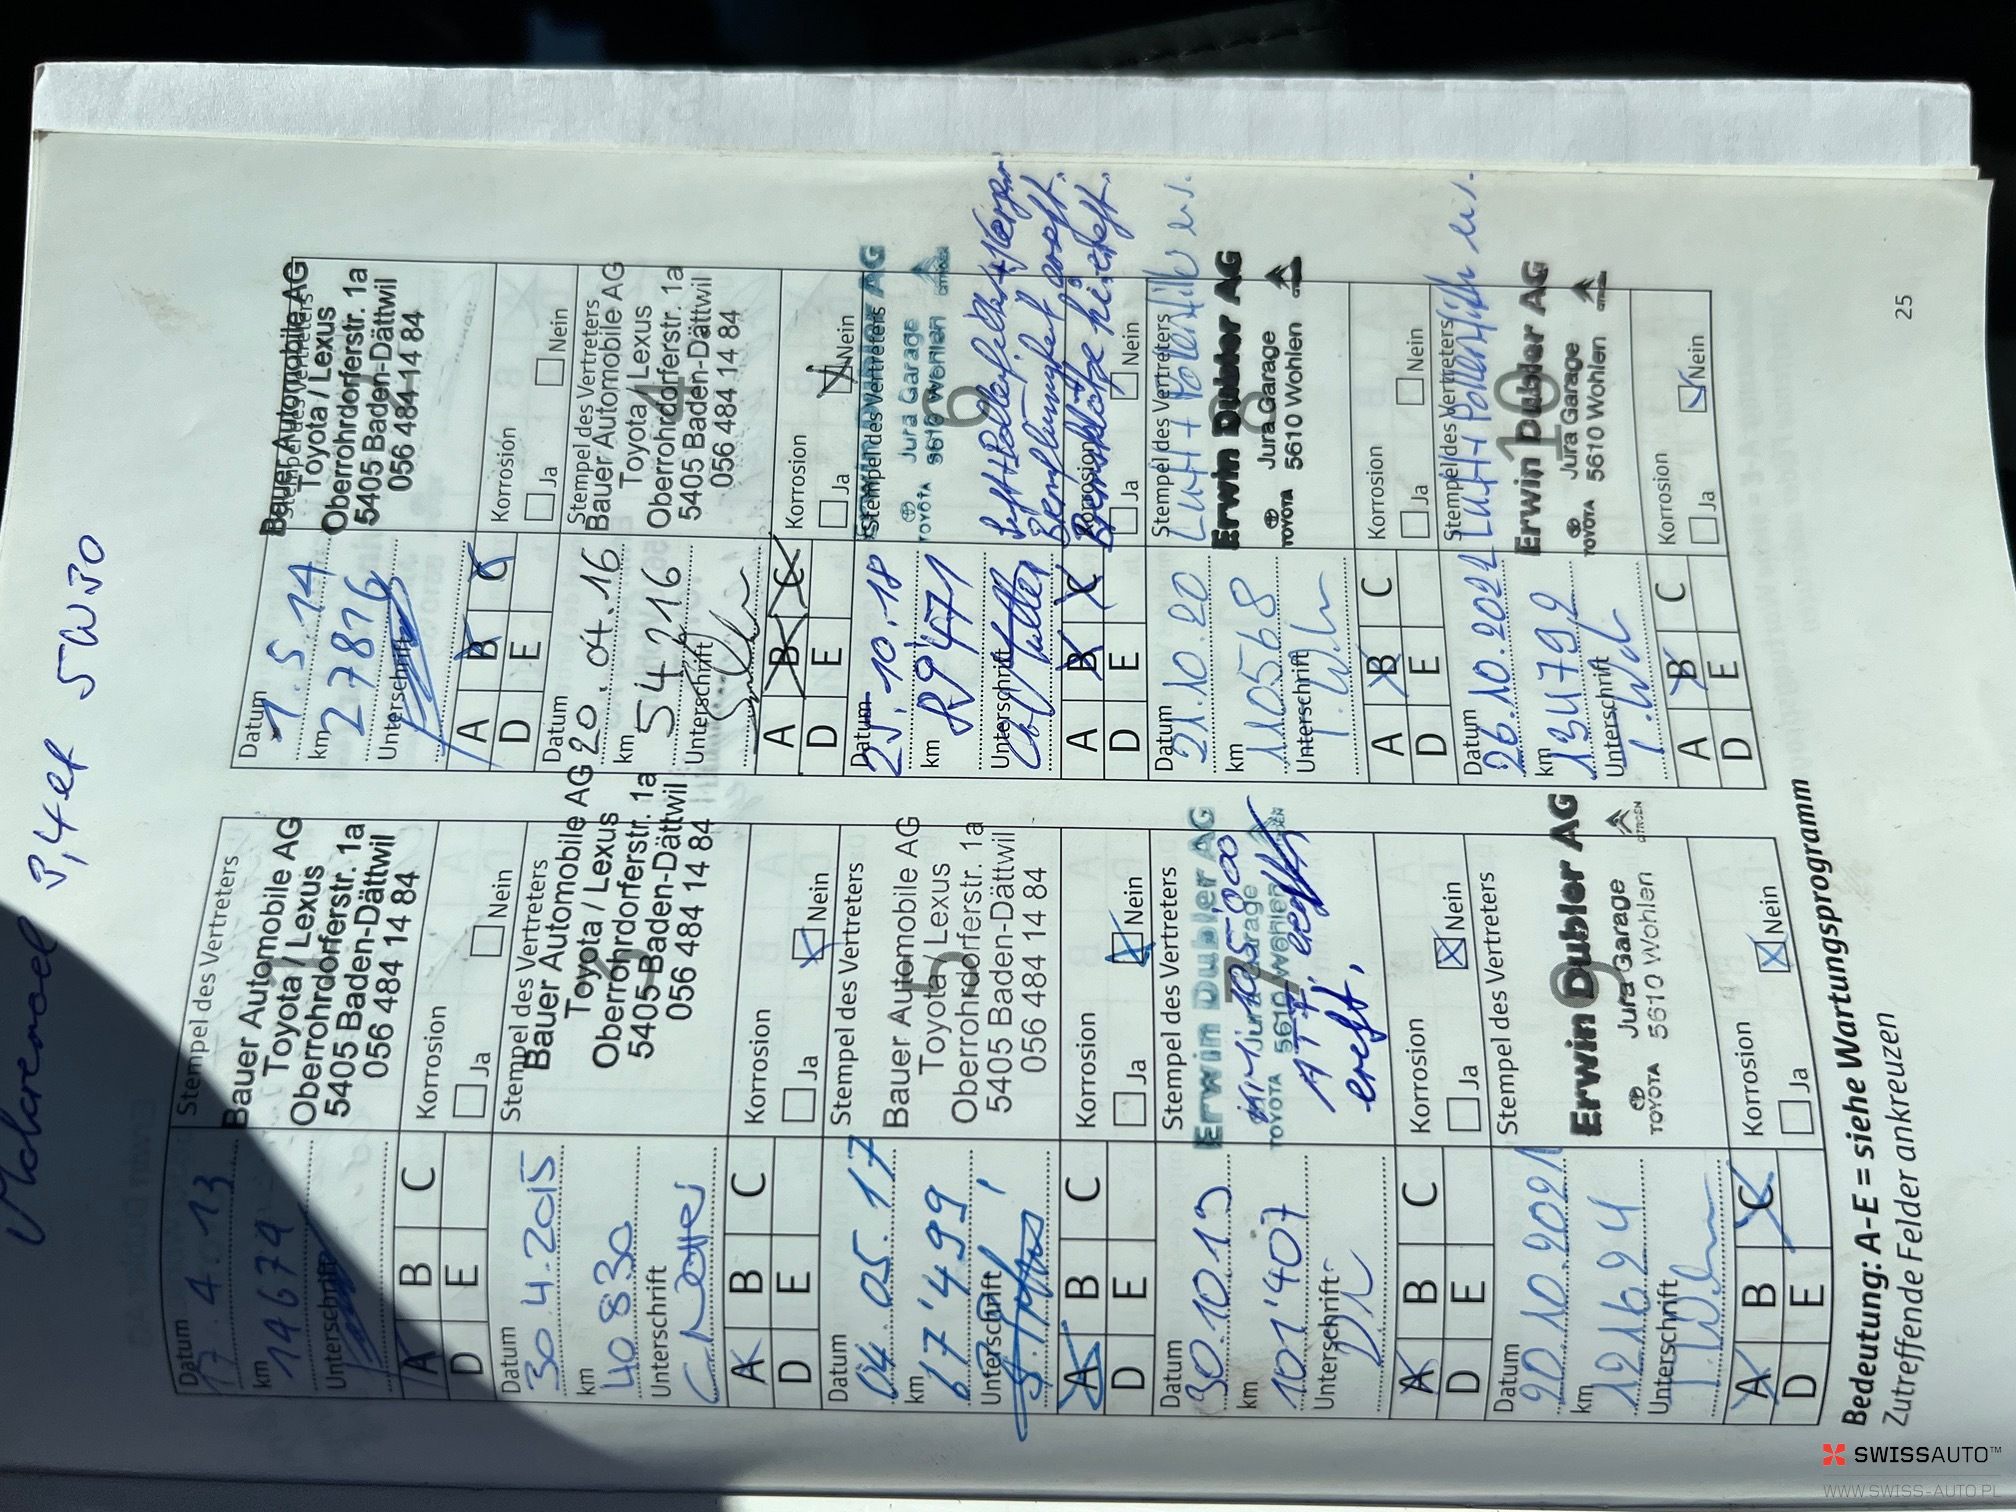 5W30
Datum
17.4.13
km
14674
Unterschrift
Stempel des Vertreters
Bauer Automobile AG
Toyota / Lexus
Oberrohrdorferstr. 1a
5405 Baden-Dättwil
056 484 14 84
A B C
D E
Korrosion
Ja Nein
Datum
1.5.14
km
27876
Unterschrift
Stempel des Vertreters
Bauer Automobile AG
Toyota / Lexus
Oberrohrdorferstr. 1a
5405 Baden-Dättwil
056 484 14 84
A B C
D E
Korrosion
Ja Nein
Datum
30.4.2015
km
40830
Unterschrift
Stempel des Vertreters
3
Bauer Automobile AG
Toyota / Lexus
Oberrohrdorferstr. 1a
5405 Baden-Dättwil
056 484 14 84
A B C
D E
Korrosion
Ja Nein
Datum
20.04.16
km
54216
Unterschrift
Stempel des Vertreters
4
Bauer Automobile AG
Toyota / Lexus
Oberrohrdorferstr. 1a
5405 Baden-Dättwil
056 484 14 84
A B C
D E
Korrosion
Ja Nein
Datum
04.05.17
km
67'499
Unterschrift
Stempel des Vertreters
5
Bauer Automobile AG
Toyota / Lexus
Oberrohrdorferstr. 1a
5405 Baden-Dättwil
056 484 14 84
A B C
D E
Korrosion
Ja Nein
Datum
25.10.18
km
89'471
Unterschrift
Stempel des Vertreters
6
Erwin Dubler AG
Jura Garage
TOYOTA 5610 Wohlen CITROEN
A B C
D E
Korrosion
Ja Nein
Datum
30.10.19
km
101'407
Unterschrift
Stempel des Vertreters
7
Erwin Dubler AG
Jura Garage
TOYOTA 5610 Wohlen
A B C
D E
Korrosion
Ja Nein
Datum
21.10.20
km
110568
Unterschrift
Stempel des Vertreters
Luft + Pollenfilter
8
Erwin Dubler AG
Jura Garage
TOYOTA 5610 Wohlen
A B C
D E
Korrosion
Ja Nein
Datum
20.10.2021
km
121624
Unterschrift
Stempel des Vertreters
9
Erwin Dubler AG
Jura Garage
TOYOTA 5610 Wohlen CITROEN
A B C
D E
Korrosion
Ja Nein
Datum
26.10.2022
km
134792
Unterschrift
Stempel des Vertreters
10
Erwin Dubler AG
Jura Garage
TOYOTA 5610 Wohlen
A B C
D E
Korrosion
Ja Nein
Bedeutung: A-E = siehe Wartungsprogramm
Zutreffende Felder ankreuzen
25
SWISSAUTO™
WWW.SWISS-AUTO.PL